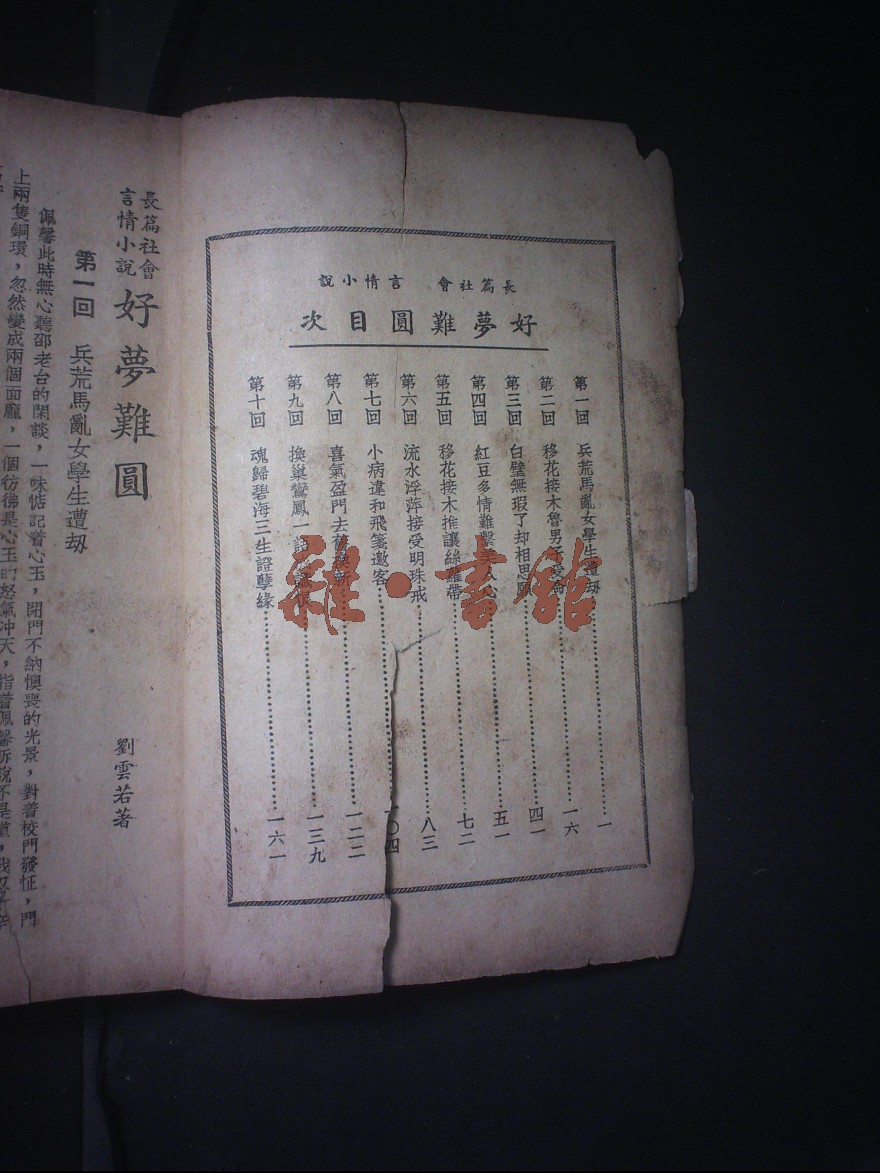 長篇社會 言情小說
好夢難圓目次
第一回 兵荒馬亂女學生遭劫 一
第二回 移花接木魯男子 一六
第三回 白璧無瑕了却相思 四一
第四回 紅豆多情難繫美人心 五一
第五回 移花接木推讓絲蘿帶 七二
第六回 流水浮萍接受明珠戒 八三
第七回 小病違和飛箋邀客 一〇四
第八回 喜氣盈門去舊換新 一二二
第九回 換巢鸞鳳一 一三九
第十回 魂歸碧海三生證孽緣 一六一
長篇社會
言情小說
好夢難圓
劉雲若著
第一回 兵荒馬亂女學生遭刼
佩馨此時無心聽邵老台的閑談，一味惦記着心玉，閉門不納懊喪的光景，對着校門發怔，門
上兩隻銅環，忽然變成兩個面龐，一個彷彿是心玉的怒氣冲天，指着佩馨訴說不是
雜·書館